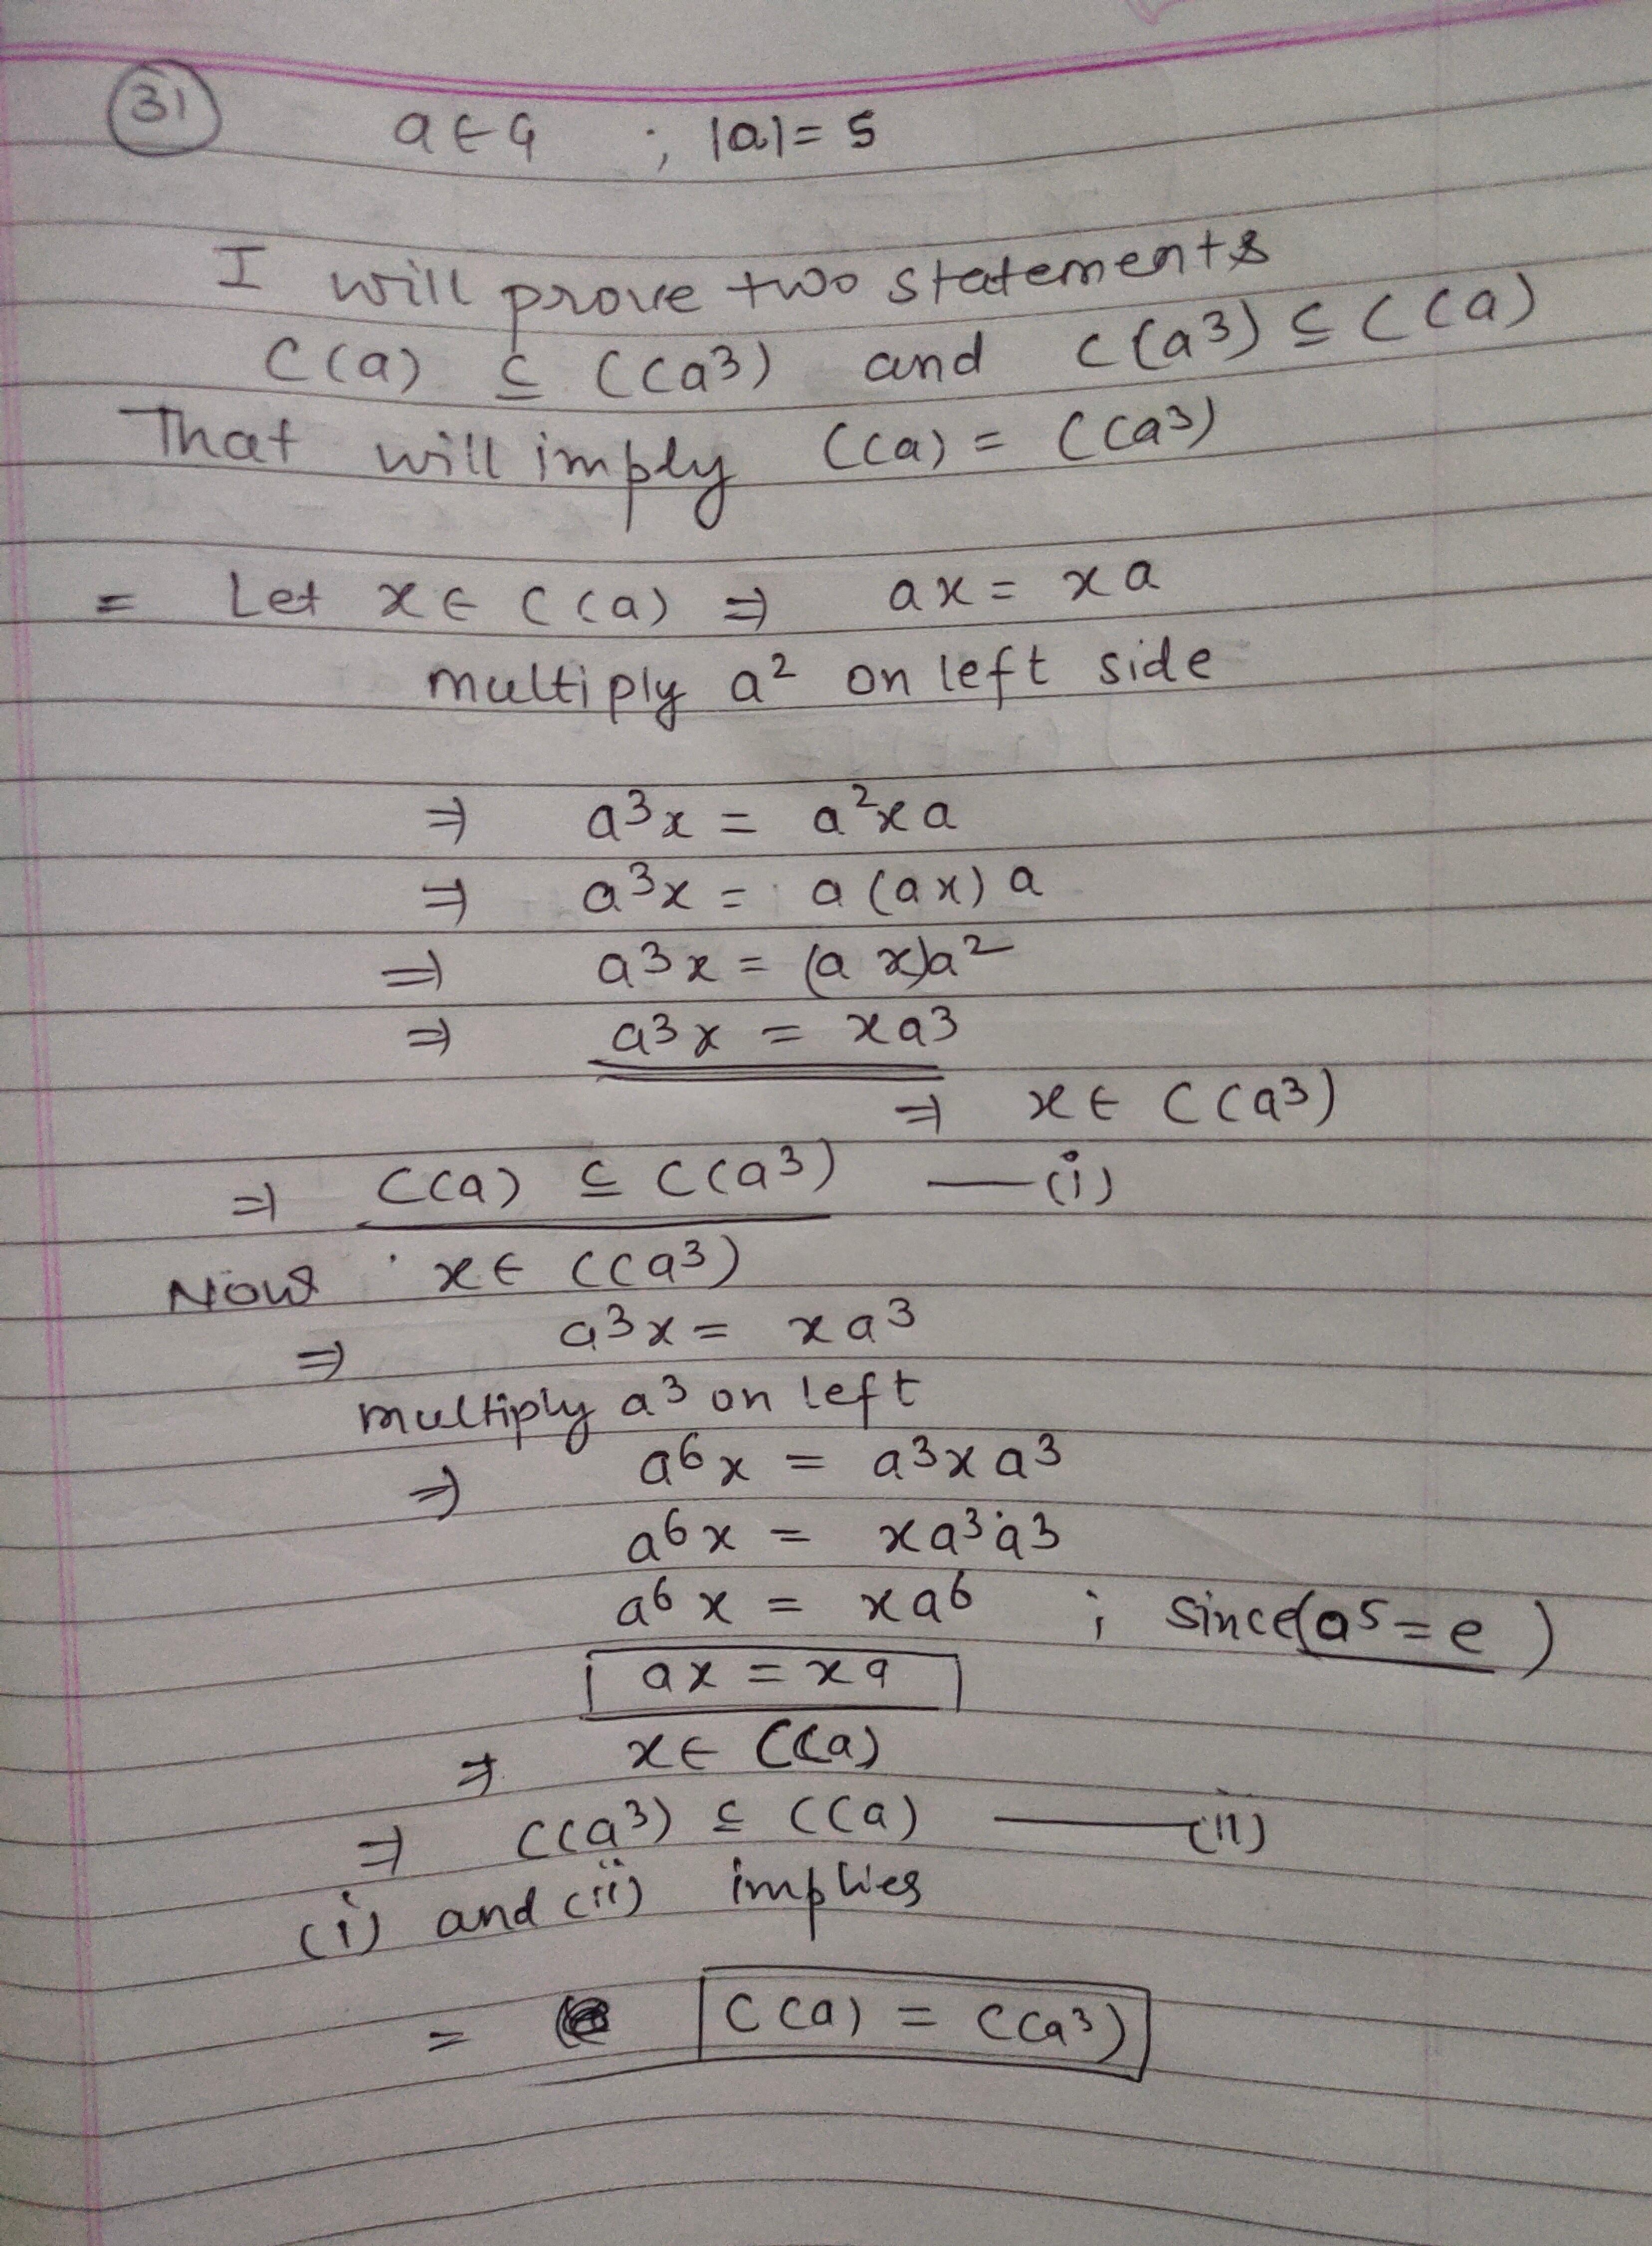 31
a ∈ G ; |a| = 5
I will prove two statements
C(a) ⊆ C(a³) and C(a³) ⊆ C(a)
That will imply C(a) = C(a³)
= Let x ∈ C(a) ⇒ ax = xa
multiply a² on left side
⇒ a³x = a²xa
⇒ a³x = a(ax)a
⇒ a³x = (ax)a²
⇒ a³x = xa³
⇒ x ∈ C(a³)
⇒ C(a) ⊆ C(a³) —(i)
Now x ∈ C(a³)
⇒ a³x = xa³
multiply a³ on left
⇒ a⁶x = a³xa³
a⁶x = xa³a³
a⁶x = xa⁶ ; since(a⁵ = e)
ax = xa
⇒ x ∈ C(a)
⇒ C(a³) ⊆ C(a) —(ii)
(i) and (ii) implies
= C(a) = C(a³)